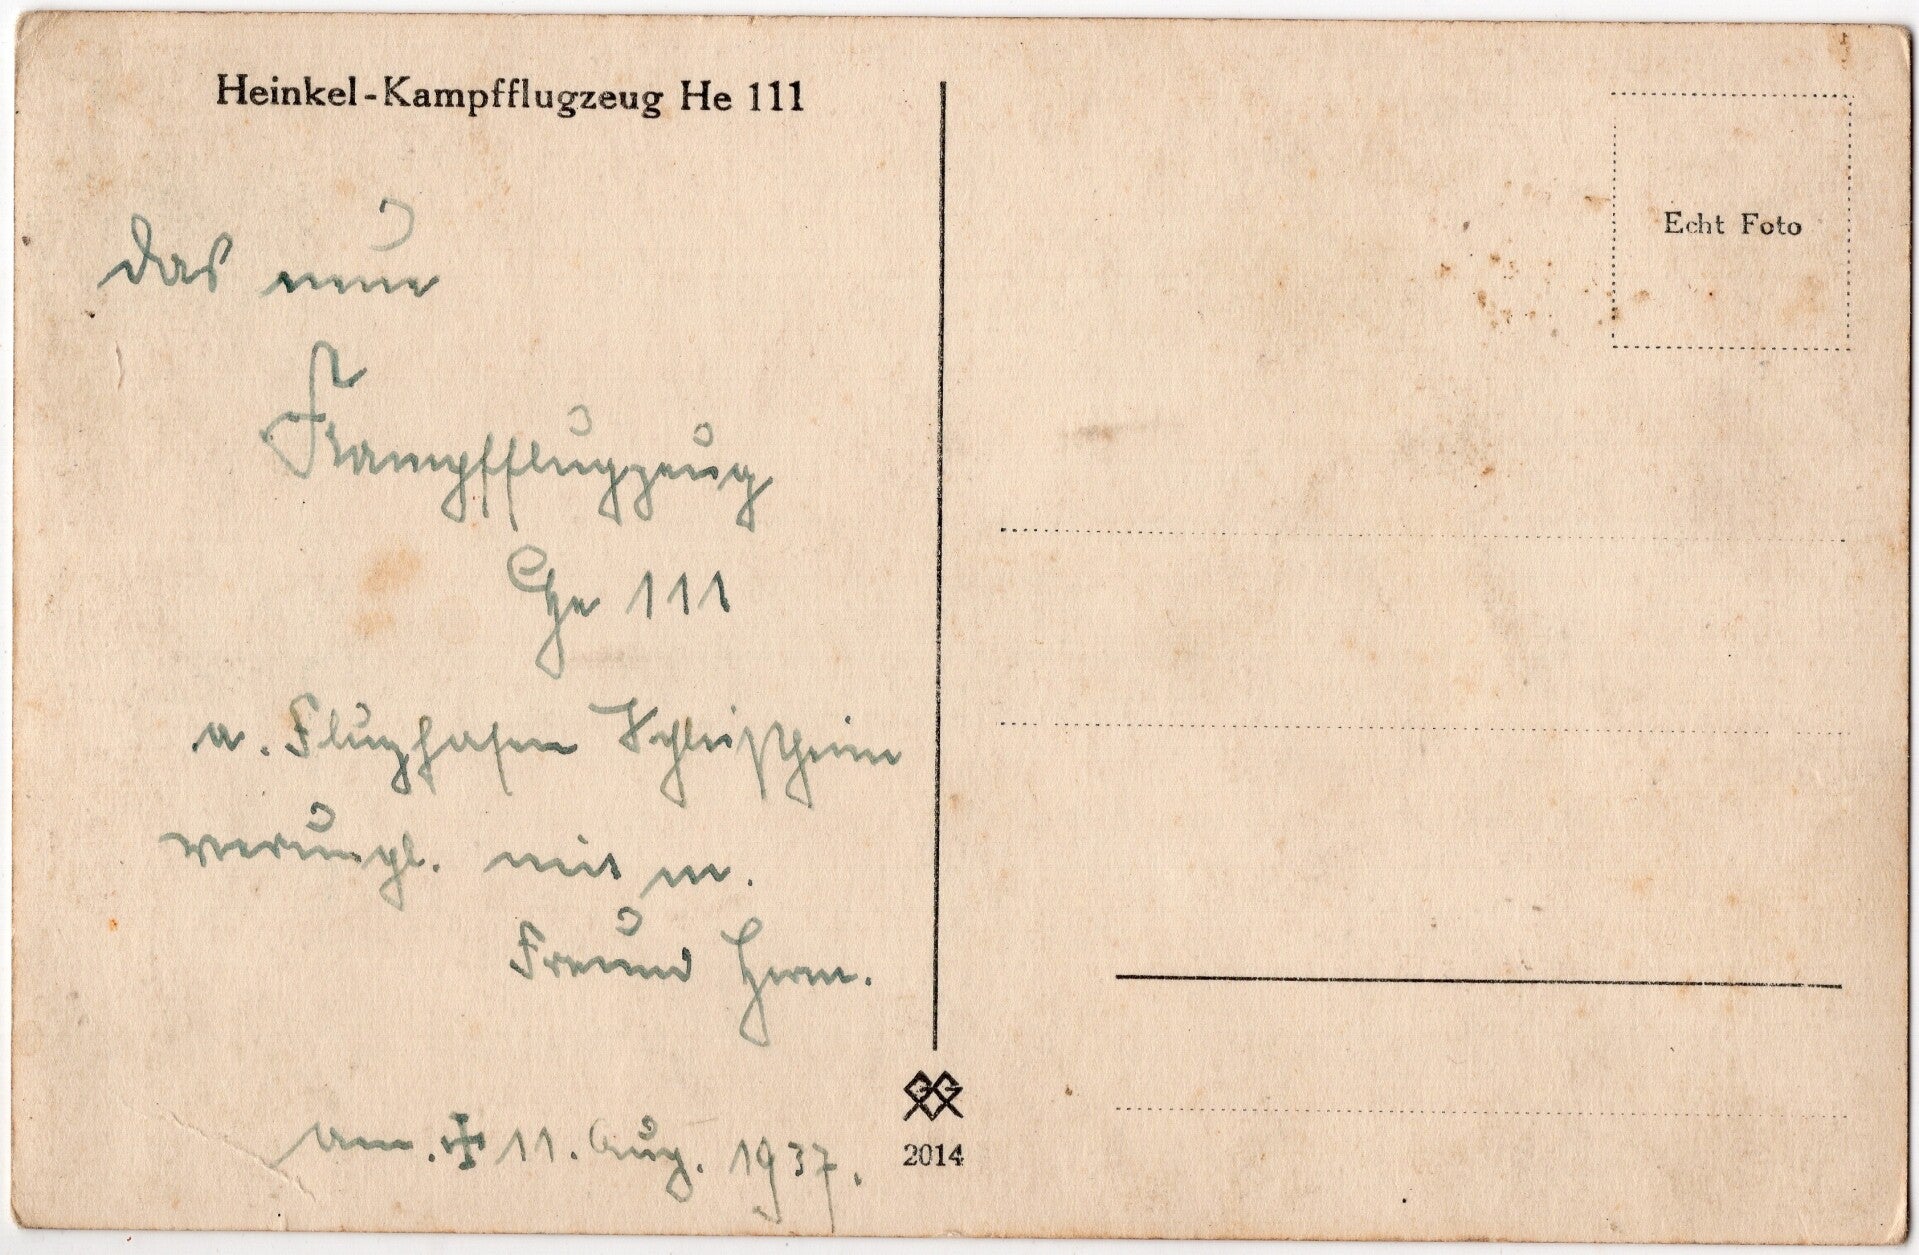 Heinkel-Kampfflugzeug He 111
Echt Foto
das neue
Kampfflugzeug
He 111
a. Flughafen Schleißheim
verungl. mit m.
Freund Herm.
am. ✠ 11. Aug. 1937.
2014